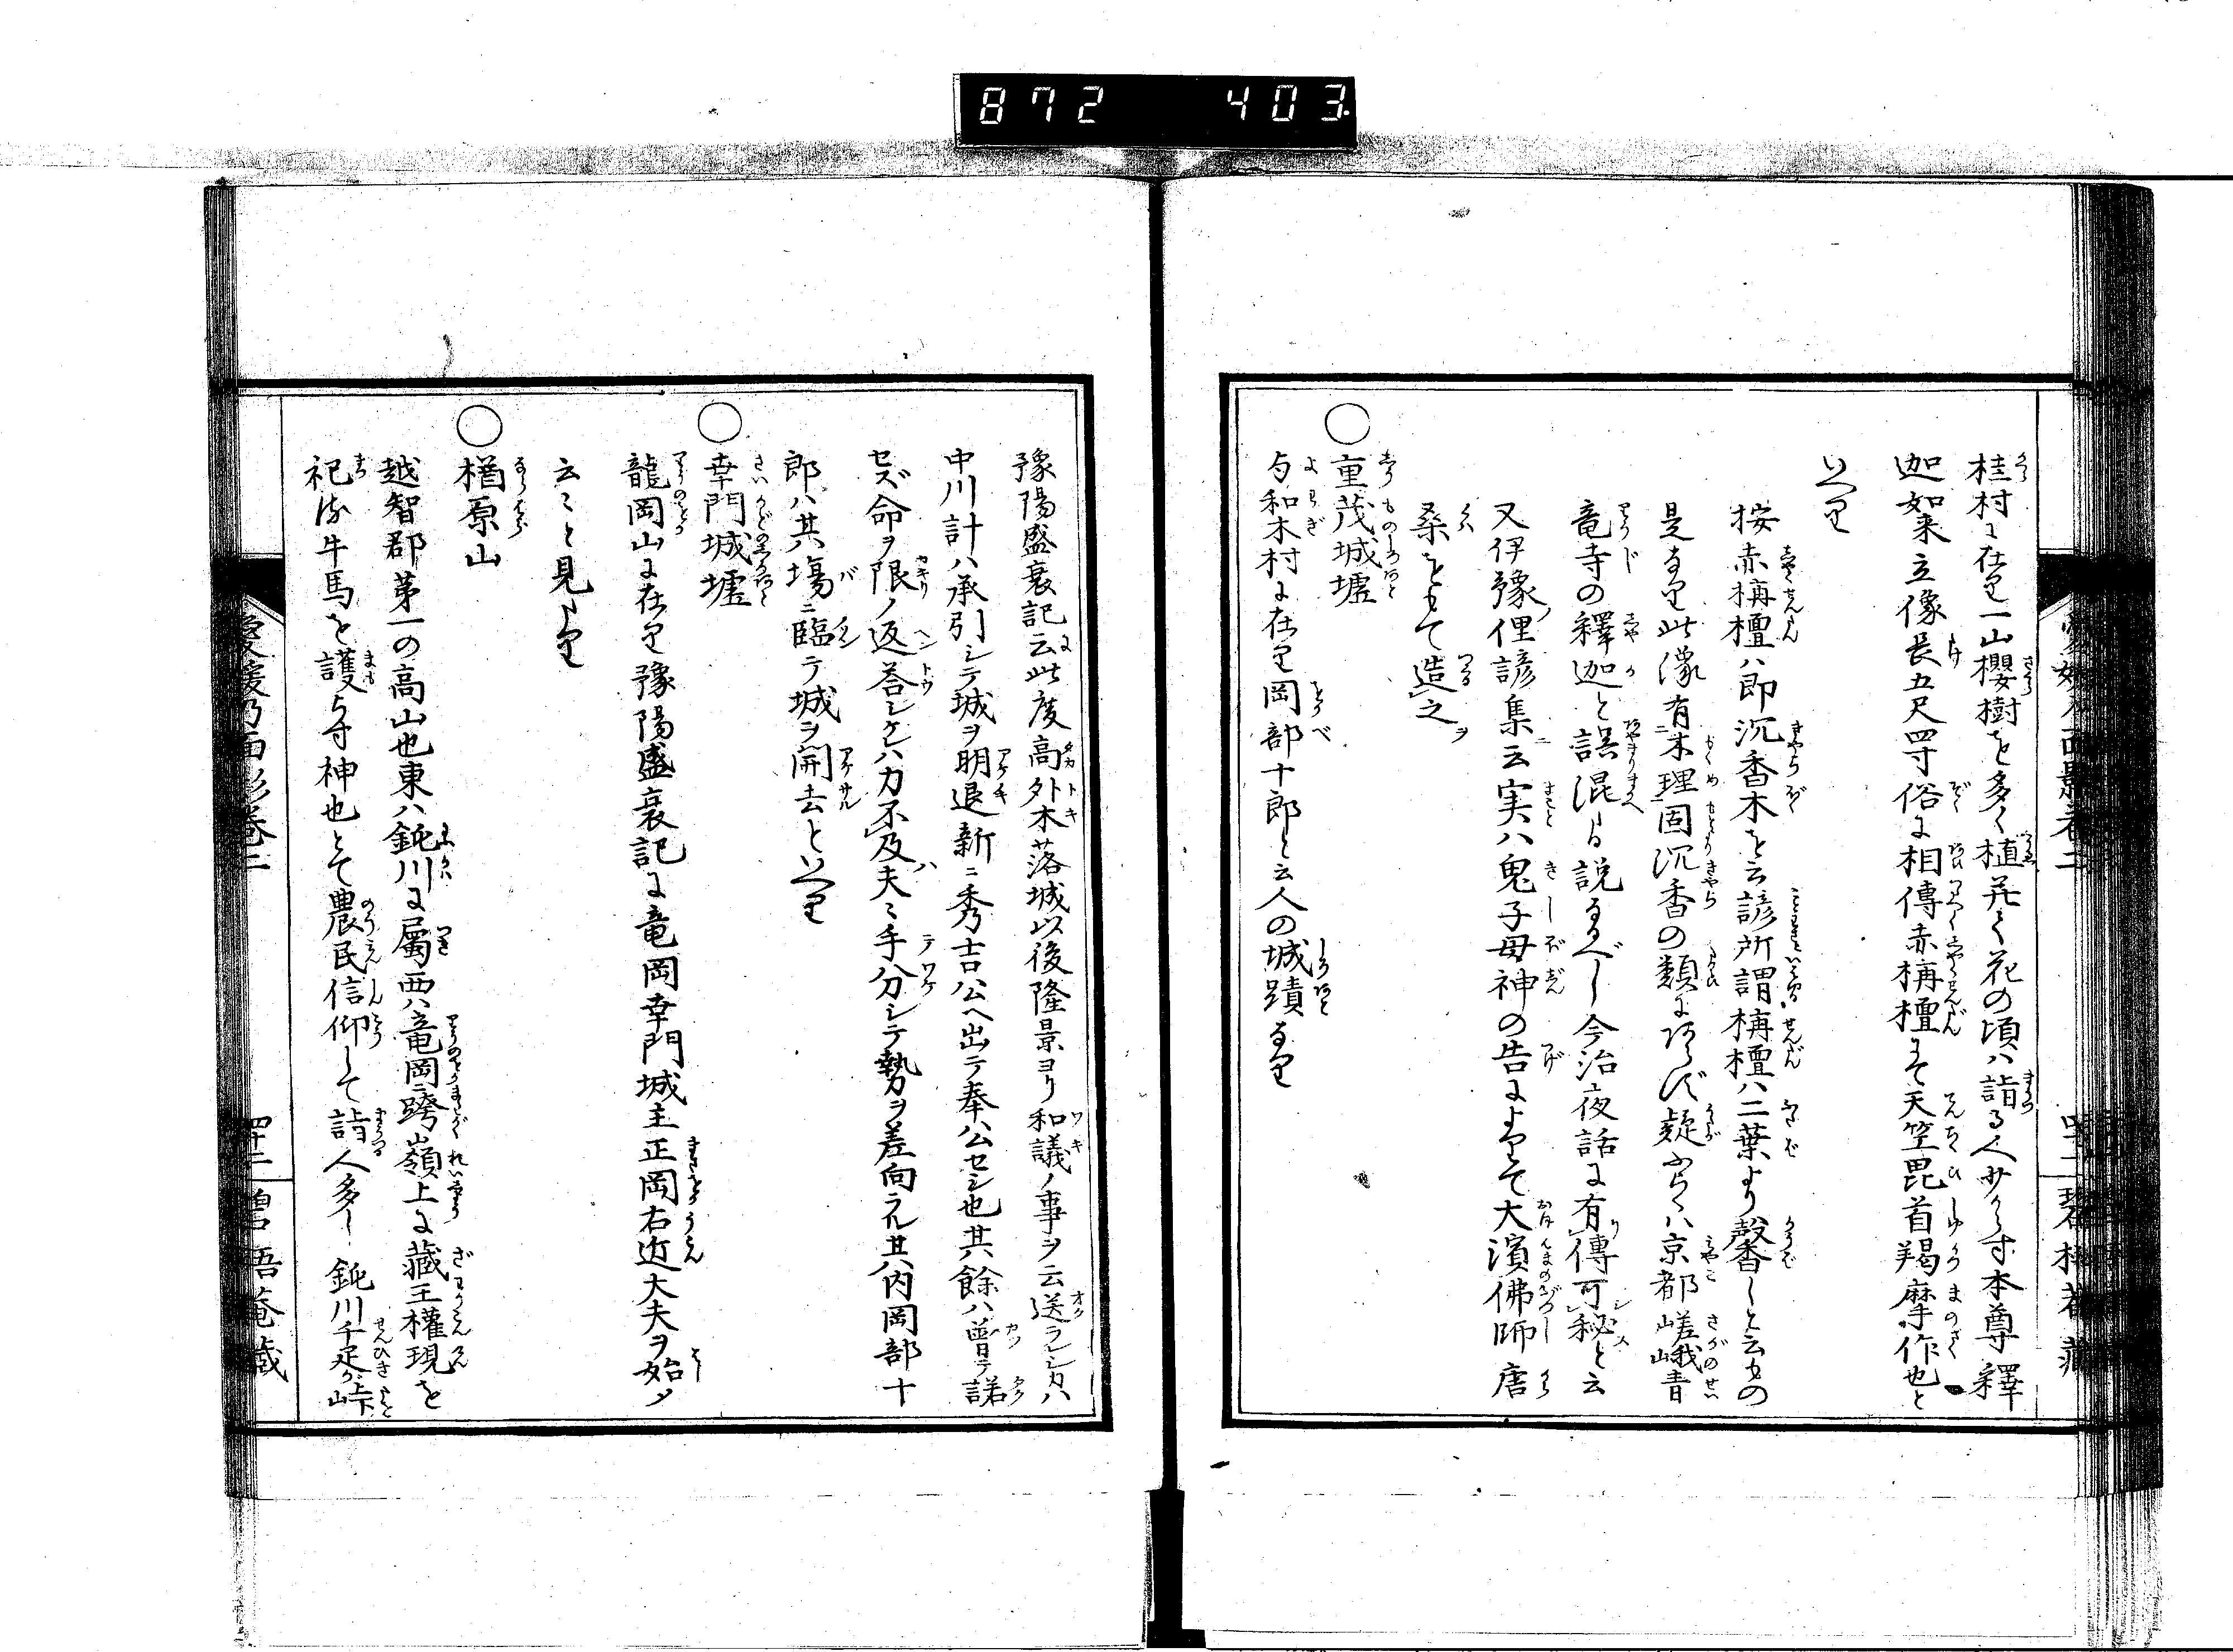 872 403
桂村に在り一山櫻樹を多く植並て花の頃ハ詣る人少からす本尊釋
迦如来立像長五尺四寸俗に相傳赤栴檀にて天竺毘首羯摩作也と
いへり
按赤栴檀ハ即沉香木を云諺所謂栴檀ハ二葉より馨しと云もの
是なり此像有木理固沉香の類にあらず疑らくハ京都嵯峨青
竜寺の釋迦と誤混る説なるべし今治夜話に有傳可秘と云
又伊豫俚諺集云実ハ鬼子母神の告によりて大濱佛師唐
桑をもて造之
○重茂城墟
与和木村に在り岡部十郎と云人の城蹟なり
豫陽盛衰記云此度高外木落城以後隆景ヨリ和議ノ事ヲ云送ラレシカハ
中川計ハ承引シテ城ヲ明退新ニ秀吉公ヘ出テ奉公セシ也其餘ハ曽テ諾
セズ命ヲ限ノ返荅シケレハ力不及夫々手分シテ勢ヲ差向ラル其内岡部十
郎ハ其塲ニ臨テ城ヲ開去といへり
○幸門城墟
龍岡山に在り豫陽盛衰記に竜岡幸門城主正岡右近大夫ヲ始メ
云々と見えたり
○楢原山
越智郡第一の高山也東ハ鈍川に屬西ハ竜岡ニ跨嶺上に藏王權現を
祀る牛馬を護らす神也とて農民信仰して詣人多し 鈍川千疋峠
愛媛乃面影巻二
四十二
碧梧菴藏